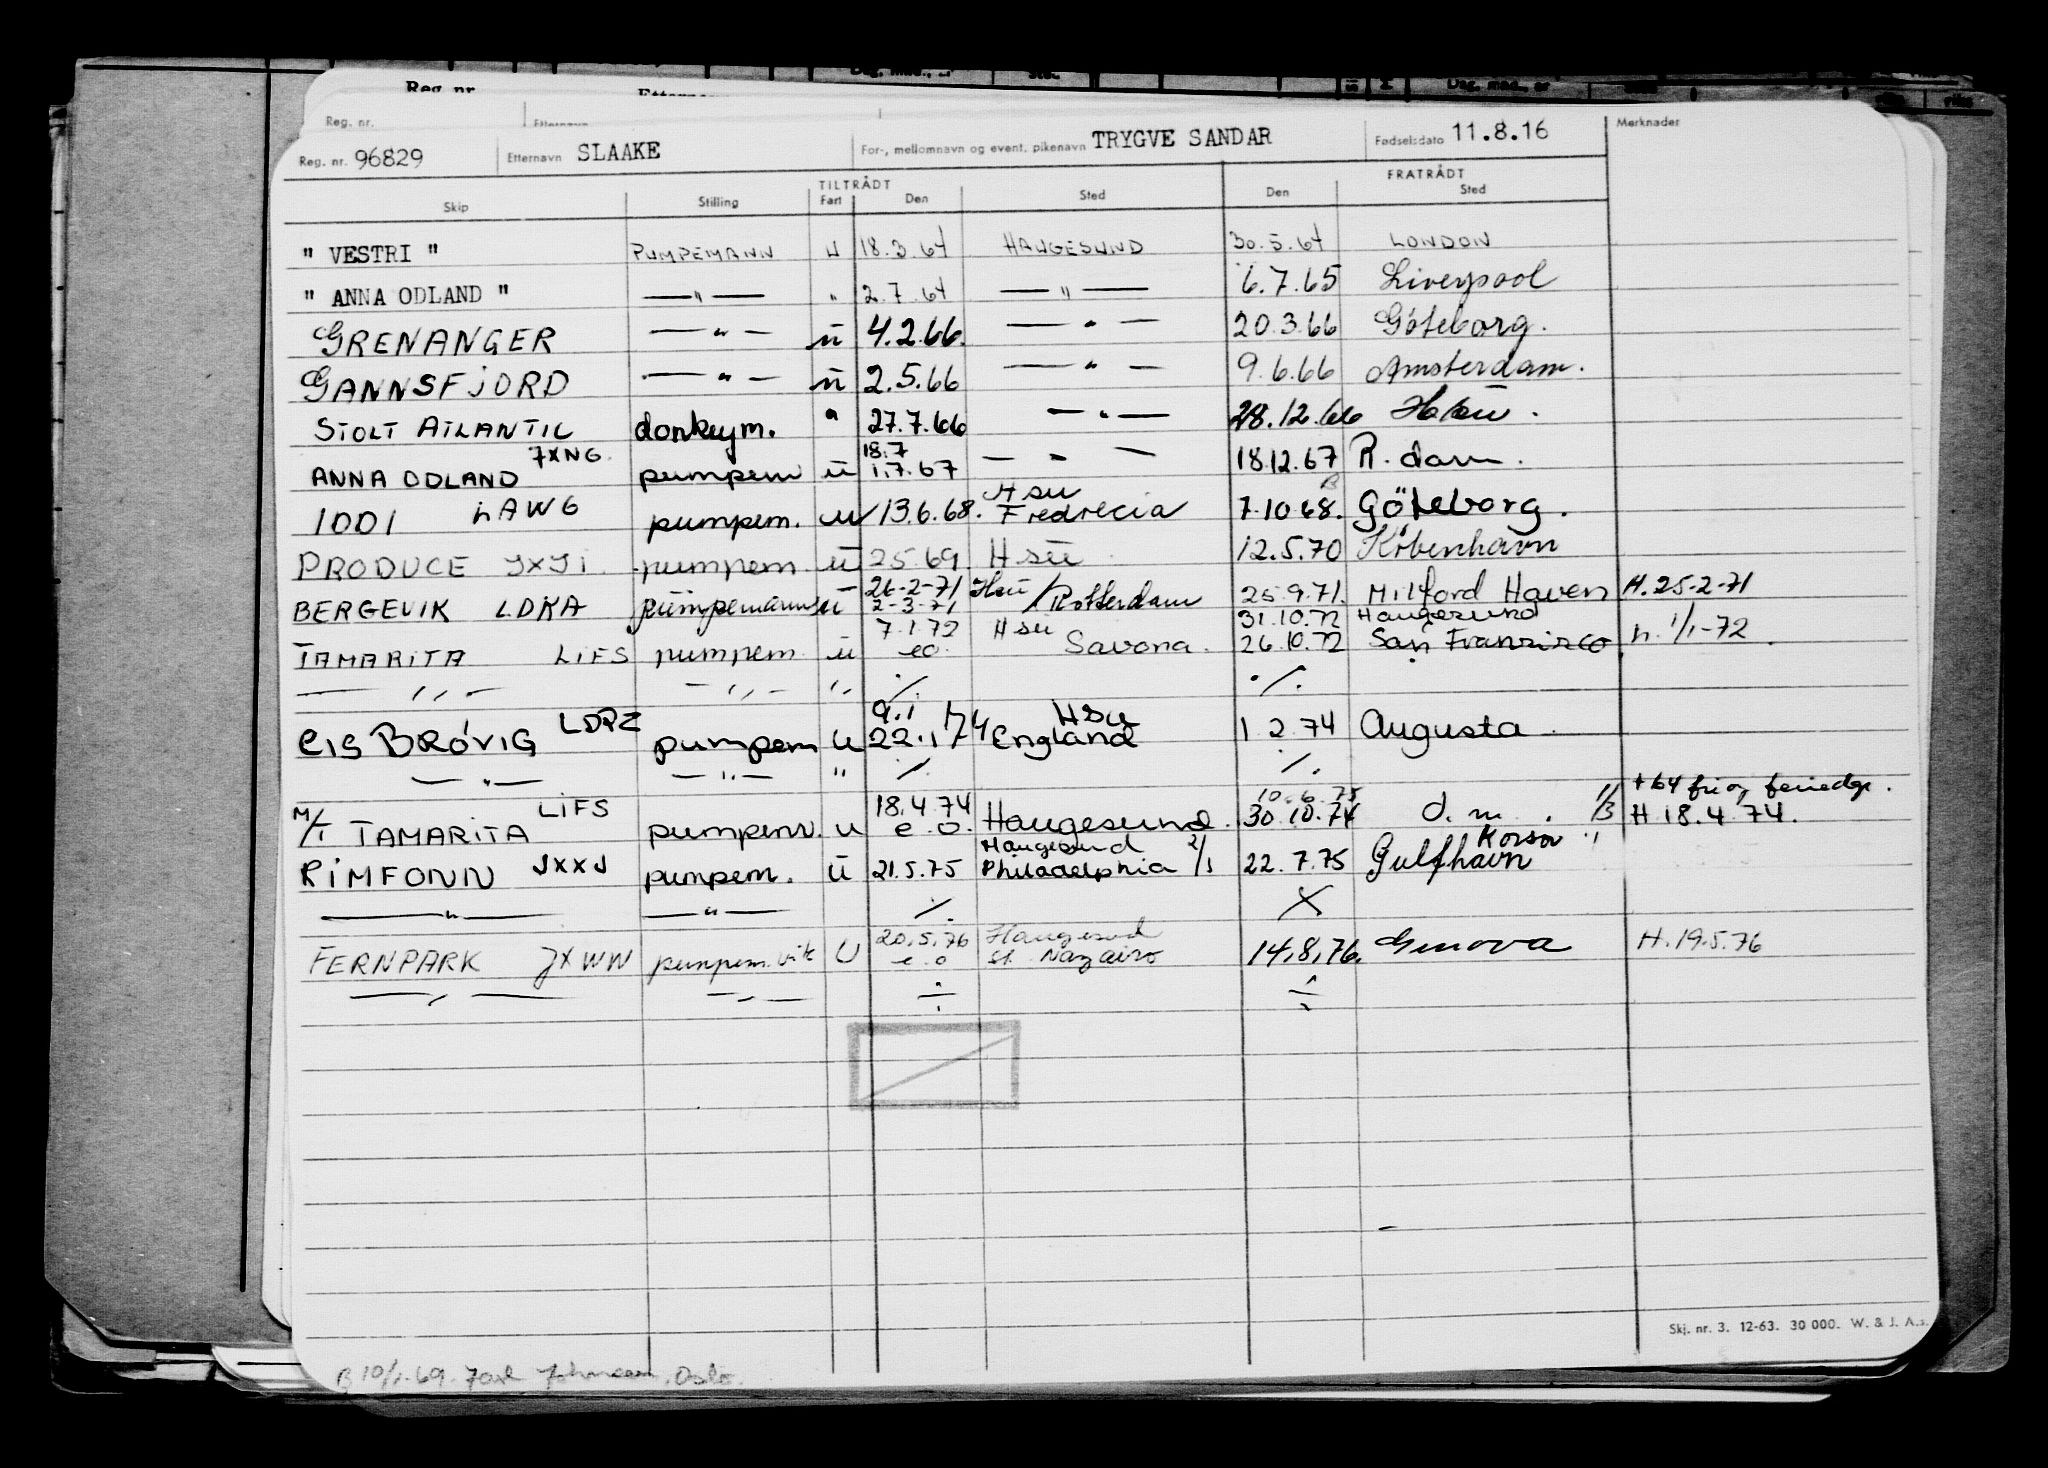 Reg. nr.
Reg. nr. Etternavn
Reg. nr. 96829 Etternavn SLAAKE For-, mellomnavn og event. pikenavn TRYGVE SANDAR Fødselsdato 11.8.16 Merknader
TILTRÅDT FRATRÅDT
Skip Stilling Fart Den Sted Den Sted
" VESTRI " PUMPEMANN U 18.3.64 HAUGESUND 30.5.64 LONDON
" ANNA ODLAND " —"— " 2.7.64 —"— 6.7.65 Liverpool
GRENANGER —"— u 4.2.66. —"— 20.3.66 Göteborg.
GANNSFJORD —"— u 2.5.66 —"— 9.6.66 Amsterdam.
STOLT ATLANTIC donkeym. " 27.7.66 —"— 28.12.66
JXNG 18.7
ANNA ODLAND pumpem u 1.7.67 —"— 18.12.67 R.dam.
Hsu
1001 LAWG pumpem. u 13.6.68. Fredrecia 7.10.68. Göteborg.
PRODUCE JXJI pumpem. u 2.5.69. Hsu 12.5.70 København
26-2-71 Hsu
BERGEVIK LDKA pumpemann u 2-3-71 / Rotterdam 25.9.71. Milford Haven H. 25-2-71
7.1.72 Hsu 31.10.72 Haugesund
TAMARITA LIFS pumpem u eo. Savona. 26.10.72 San Franzisco h. 1/1-72.
—"— —"— " ./. ./.
9.1 Hsu
Cis BRØVIG LDPZ pumpem u 22.1/74 England 1 2.74 Augusta.
—"— —"— " ./. ./.
LIFS 18.4.74 10.6.75 + 64 fri og feriedgr.
M/T TAMARITA pumpem. u e.o. Haugesund. 30.10.74 d.m. H 18.4.74.
Haugesund 2/1 Korsør
RIMFONN JXXJ pumpem. u 21.5.75 Philadelphia 22.7.75 Gulfhavn
—"— —"— ./. X
20.5.76 Haugesund
FERNPARK JXWW pumpem.vik U e.o St. Nazairo 14.8.76. Genova H. 19.5.76
—"— —"— ÷ ÷
Skj. nr. 3. 12-63. 30 000. W. & J. A.s.
B 10/1-69. Oslo.